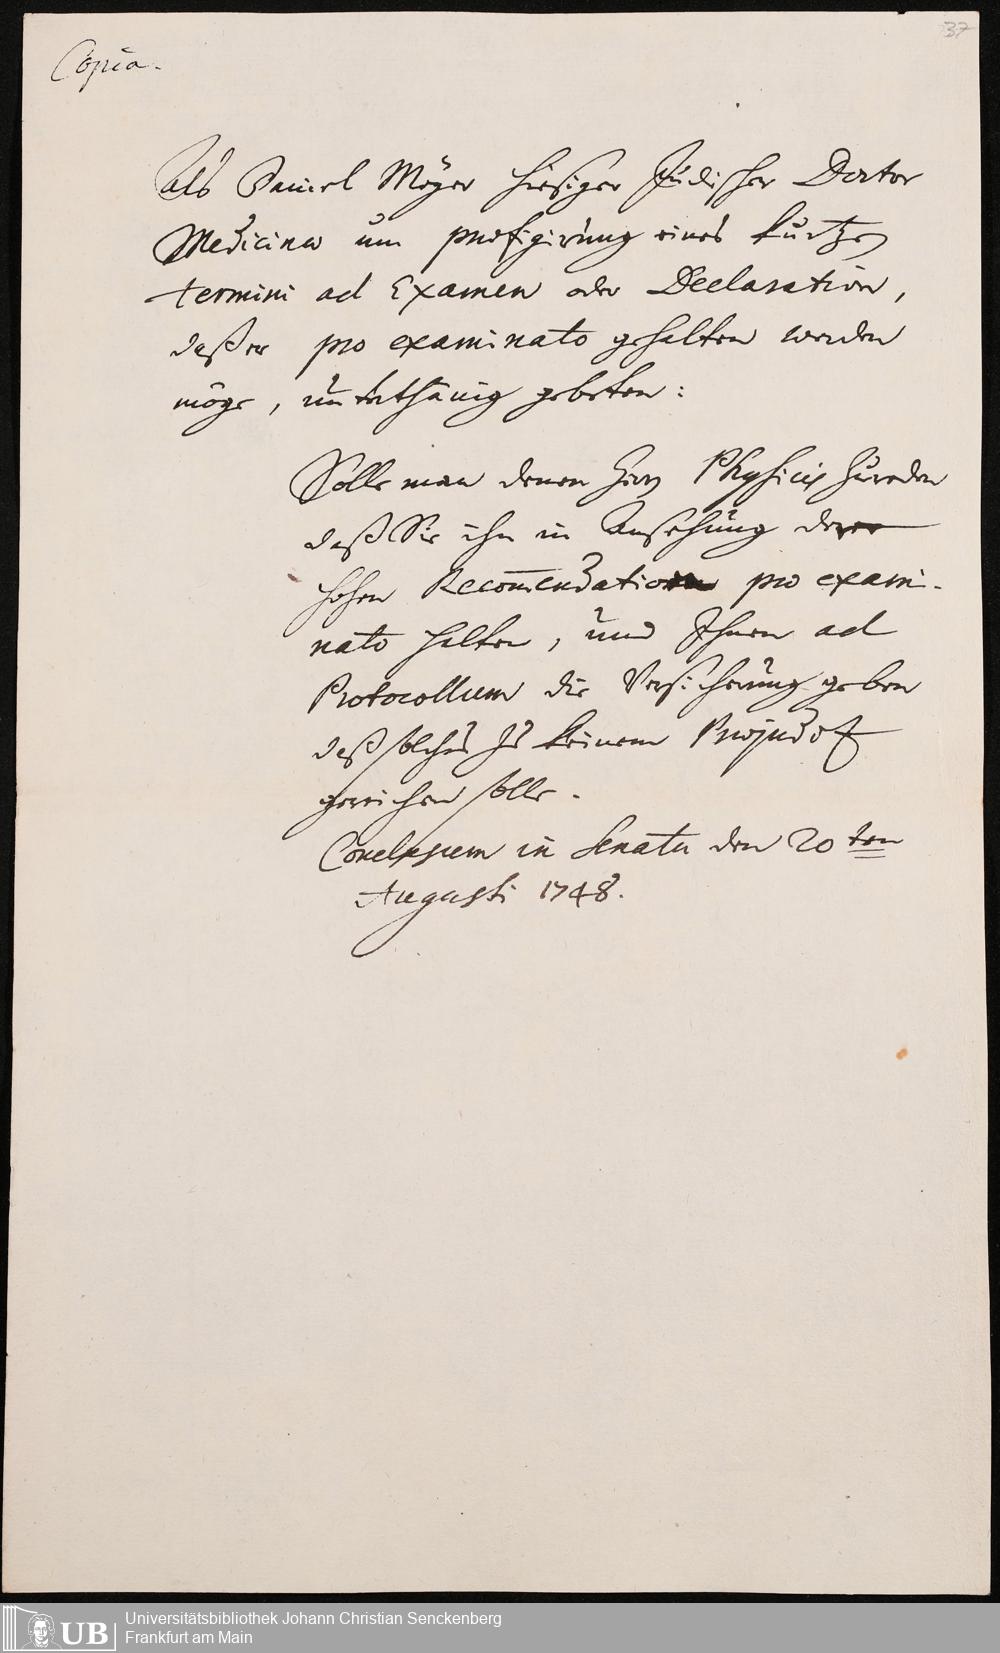 37
Copia.
Als Daniel Möyer hiesiger Jüdischer Doctor
Medicinæ um præfigirung eines kurtzen
termini ad Examen oder Declaration,
daß er pro examinato gehalten werden
möge, unterthänig gebeten:
Solle man denen Herren Physicis zureden
daß Sie ihn in Ansehung derer
hohen Recom̄endation pro exami-
nato halten, und Ihnen ad
Protocollum die Versicherung geben
daß solches zu keinem Præjudiz
gereichen solle.
Conclusum in Senatu den 20ten
Augusti 1748.
UB
Universitätsbibliothek Johann Christian Senckenberg
Frankfurt am Main